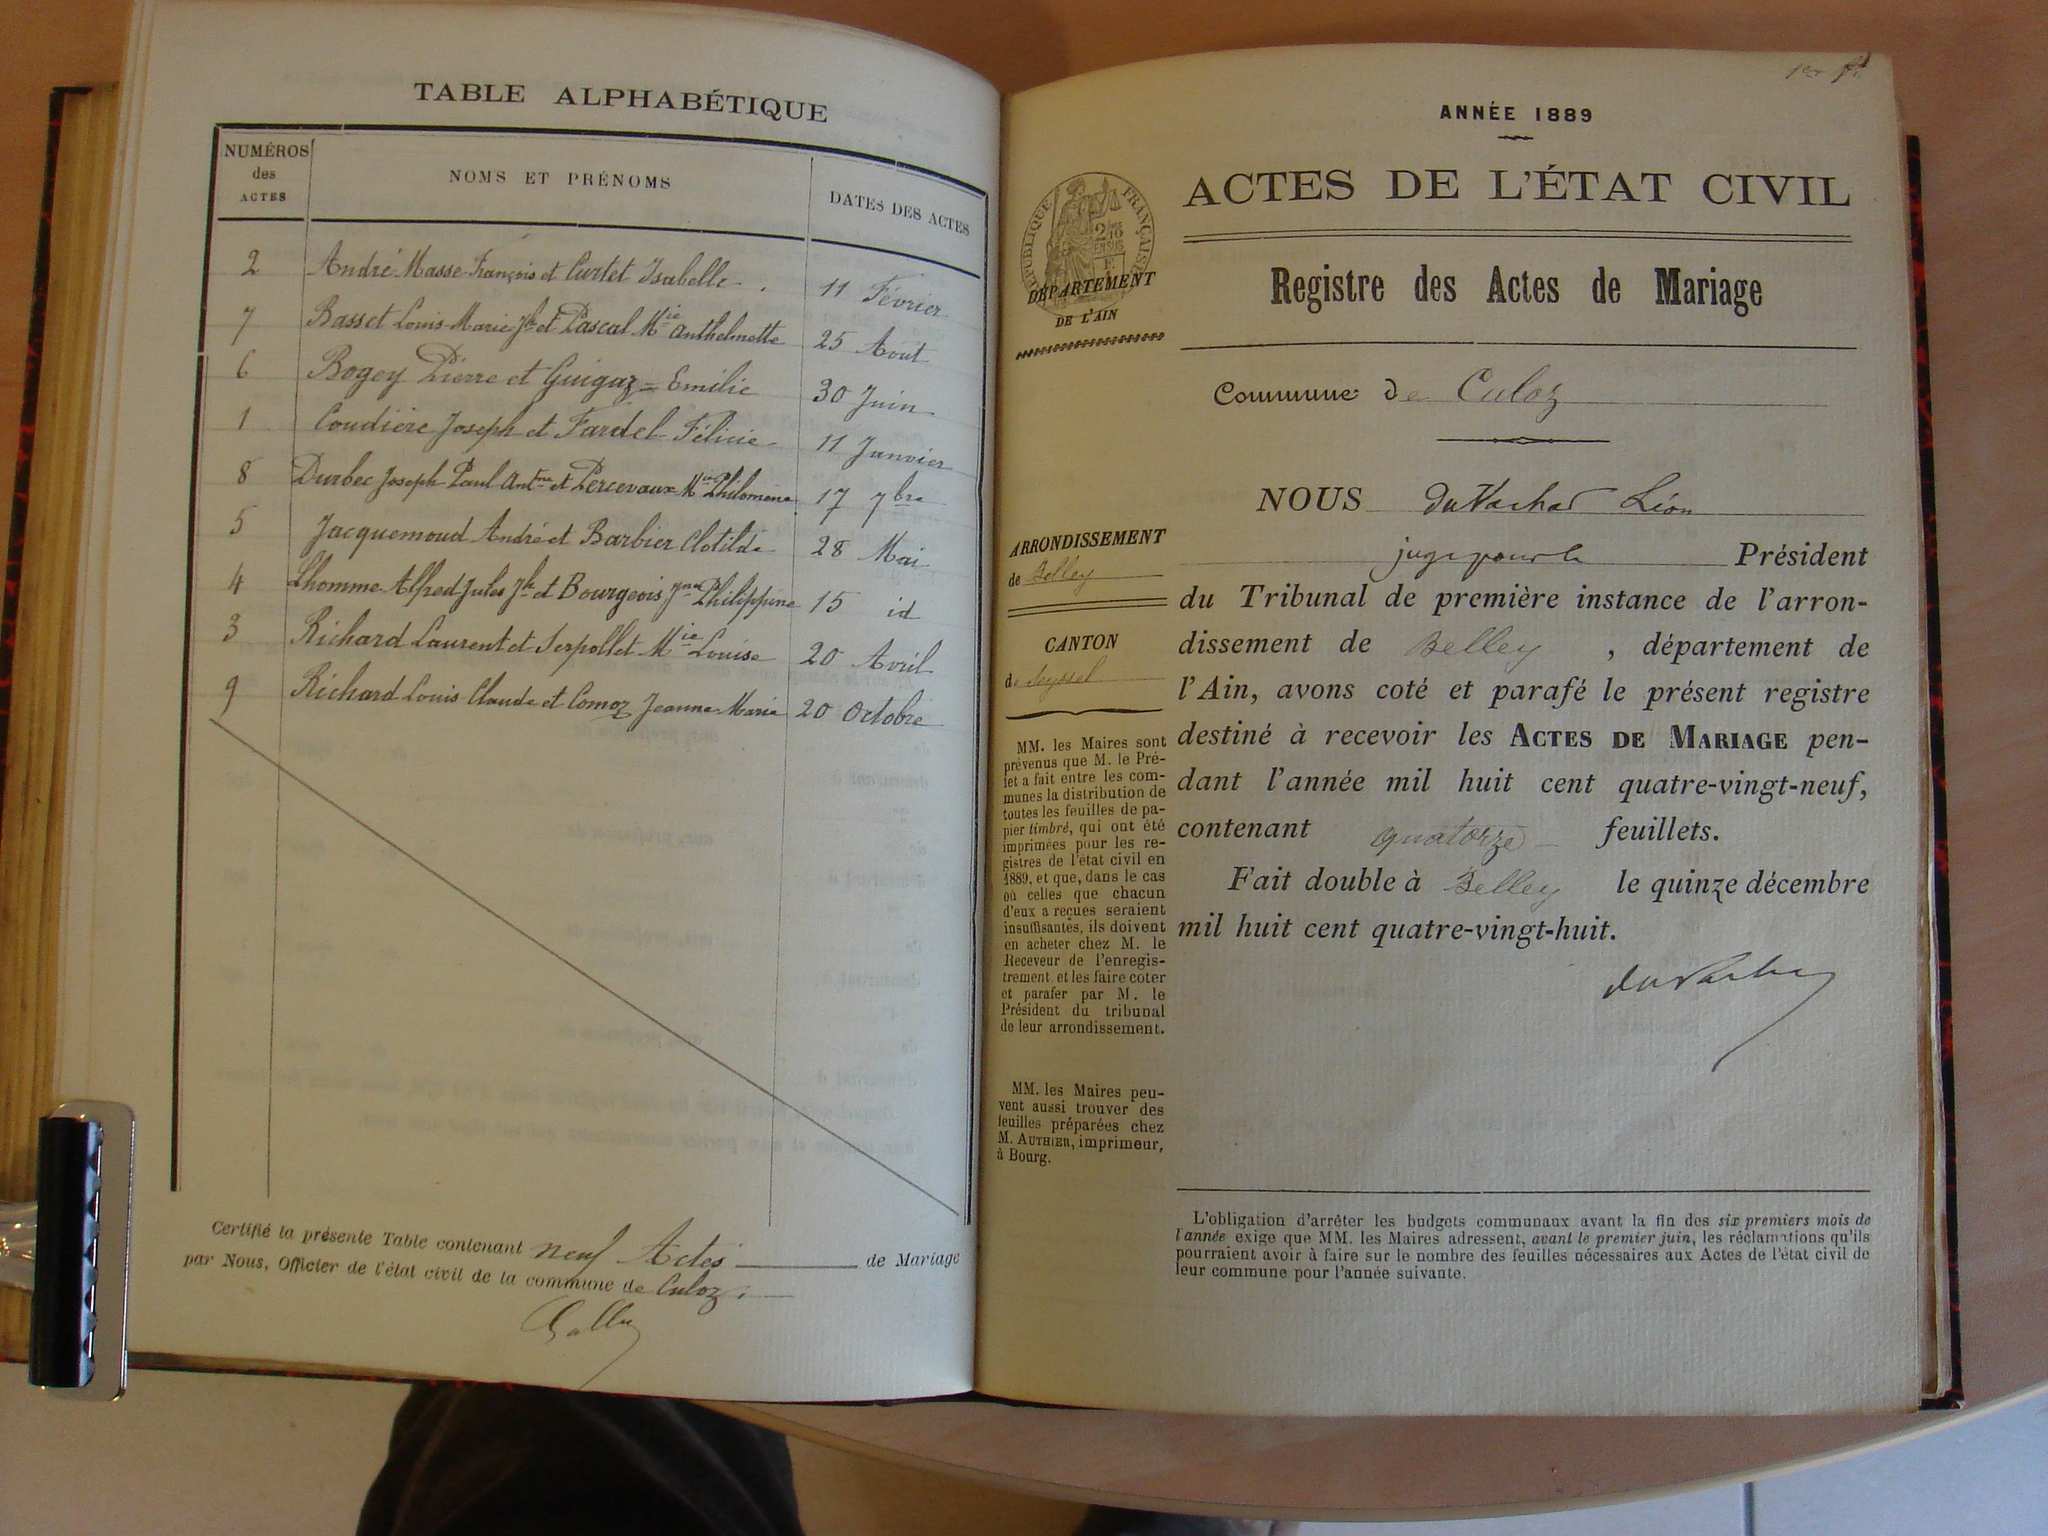 TABLE ALPHABÉTIQUE
NUMÉROS des ACTES NOMS ET PRÉNOMS DATES DES ACTES
2 André Masse François et Curtet Isabelle 11 Février
7 Basset Louis Marie Jh et Pascal Mie Anthelmette 25 Août
6 Bogey Pierre et Guigaz = Emilie 30 Juin
1 Coudière Joseph et Fardel Félicie 11 Janvier
8 Durbec Joseph Paul Antne et Percevaux Mie Philomène 17 7bre
5 Jacquemoud André et Barbier Clotilde 28 Mai
4 Lhomme Alfred Jules Jh et Bourgeois Jne Philippine 15 id
3 Richard Laurent et Serpollet Mie Louise 20 Avril
9 Richard Louis Claude et Comoz Jeanne Marie 20 Octobre
Certifié la présente Table contenant neuf Actes de Mariage
par Nous, Officier de l'état civil de la commune de Culoz.
ANNÉE 1889
ACTES DE L'ÉTAT CIVIL
Registre des Actes de Mariage
RÉPUBLIQUE FRANÇAISE
DÉPARTEMENT
DE L'AIN
Commune de Culoz
NOUS Léon
juge pour le Président
du Tribunal de première instance de l'arron-
dissement de Belley, département de
l'Ain, avons coté et parafé le présent registre
destiné à recevoir les ACTES DE MARIAGE pen-
dant l'année mil huit cent quatre-vingt-neuf,
contenant quatorze feuillets.
Fait double à Belley le quinze décembre
mil huit cent quatre-vingt-huit.
ARRONDISSEMENT
de Belley
CANTON
de Seyssel
MM. les Maires sont
prévenus que M. le Pré-
fet a fait entre les com-
munes la distribution de
toutes les feuilles de pa-
pier timbré, qui ont été
imprimées pour les re-
gistres de l'état civil en
1889, et que, dans le cas
où celles que chacun
d'eux a reçues seraient
insuffisantes, ils doivent
en acheter chez M. le
Receveur de l'enregis-
trement et les faire coter
et parafer par M. le
Président du tribunal
de leur arrondissement.
MM. les Maires peu-
vent aussi trouver des
feuilles préparées chez
M. AUTHIER, imprimeur,
à Bourg.
L'obligation d'arrêter les budgets communaux avant la fin des six premiers mois de
l'année exige que MM. les Maires adressent, avant le premier juin, les réclamations qu'ils
pourraient avoir à faire sur le nombre des feuilles nécessaires aux Actes de l'état civil de
leur commune pour l'année suivante.